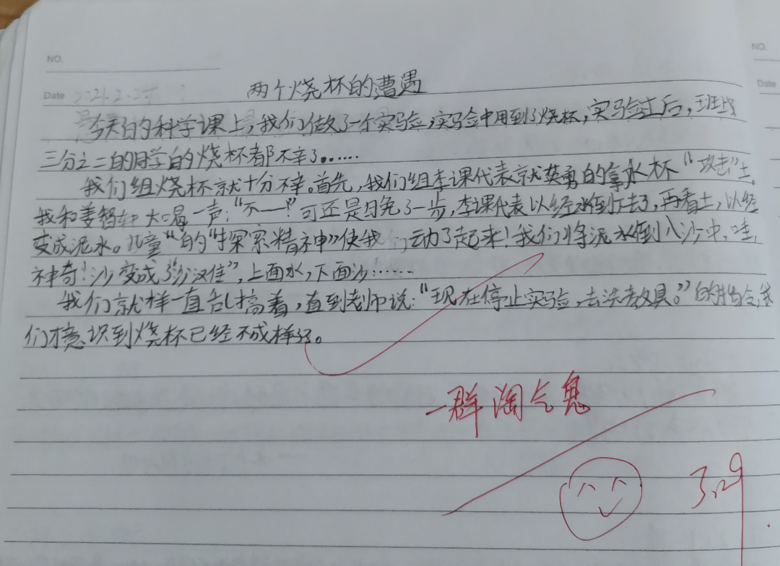 NO.
Date 2021.2.25
两个烧杯的遭遇
今天的科学课上，我们做了一个实验，实验中用到了烧杯，实验过后，班上
三分之二的同学的烧杯都不幸了……
我们组烧杯就十分不幸。首先，我们组李课代表就英勇的拿水杯“攻击”土，
我和姜智 大喝一声：“不一！”可还是晚了一步，李课代表以经水倒下去了，再看土，以经
变成泥水。儿童“的“探索精神”使我们动了起来！我们将泥水倒入沙中，哇，
神奇！沙变成了“沙汉堡”，上面水，下面沙……
我们就样一直乱搞着，直到老师说：“现在停止实验，去洗教具。”的指令，我
们才意识到烧杯已经不成样子。
一群淘气鬼
3.29
NO.
Da